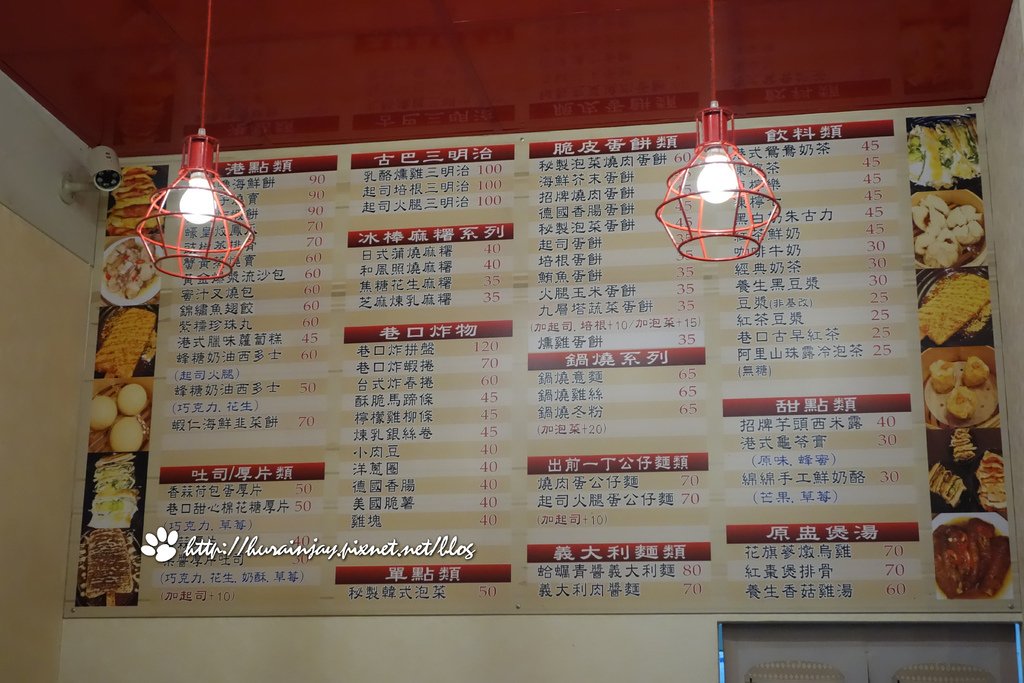 港點類
海鮮餅 90
燒賣 90
90
70
70
蟹黃 60
流沙包 60
蜜汁叉燒包 60
錦繡魚翅餃 60
紫檽珍珠丸 60
港式臘味蘿蔔糕 45
蜂糖奶油西多士 60
(起司火腿)
蜂糖奶油西多士 50
(巧克力, 花生)
蝦仁海鮮韭菜餅 70
吐司/厚片類
香蒜荷包蛋厚片 50
巷口甜心棉花糖厚片 50
(巧克力, 草莓)
40
厚片吐司 30
(巧克力, 花生, 奶酥, 草莓)
(加起司+10)
古巴三明治
乳酪燻雞三明治 100
起司培根三明治 100
起司火腿三明治 100
冰棒麻糬系列
日式蒲燒麻糬 40
和風照燒麻糬 40
焦糖花生麻糬 35
芝麻煉乳麻糬 35
巷口炸物
巷口炸拼盤 120
巷口炸蝦捲 70
台式炸春捲 60
酥脆馬蹄條 45
檸檬雞柳條 45
煉乳銀絲卷 45
小肉豆 40
洋蔥圈 40
德國香腸 40
美國脆薯 40
雞塊 40
單點類
秘製韓式泡菜 50
脆皮蛋餅類
秘製泡菜燒肉蛋餅 60
海鮮芥末蛋餅
招牌燒肉蛋餅
德國香腸蛋餅
秘製泡菜蛋餅
起司蛋餅
培根蛋餅
鮪魚蛋餅 35
火腿玉米蛋餅 35
九層塔蔬菜蛋餅 35
(加起司, 培根+10/加泡菜+15)
燻雞蛋餅 35
鍋燒系列
鍋燒意麵 65
鍋燒雞絲 65
鍋燒冬粉 65
(加泡菜+20)
出前一丁公仔麵類
燒肉蛋公仔麵 70
起司火腿蛋公仔麵 70
(加起司+10)
義大利麵類
蛤蠣青醬義大利麵 80
義大利肉醬麵 70
飲料類
港式鴛鴦奶茶 45
45
45
45
黑白 朱古力 45
紅茶鮮奶 45
咖啡牛奶 30
經典奶茶 30
養生黑豆漿 30
豆漿(非基改) 25
紅茶豆漿 25
巷口古早紅茶 25
阿里山珠露冷泡茶 25
(無糖)
甜點類
招牌芋頭西米露 40
港式龜苓膏 30
(原味, 蜂蜜)
綿綿手工鮮奶酪 30
(芒果, 草莓)
原盅煲湯
花旗蔘燉烏雞 70
紅棗煲排骨 70
養生香菇雞湯 60
http://hurainjay.pixnet.net/blog